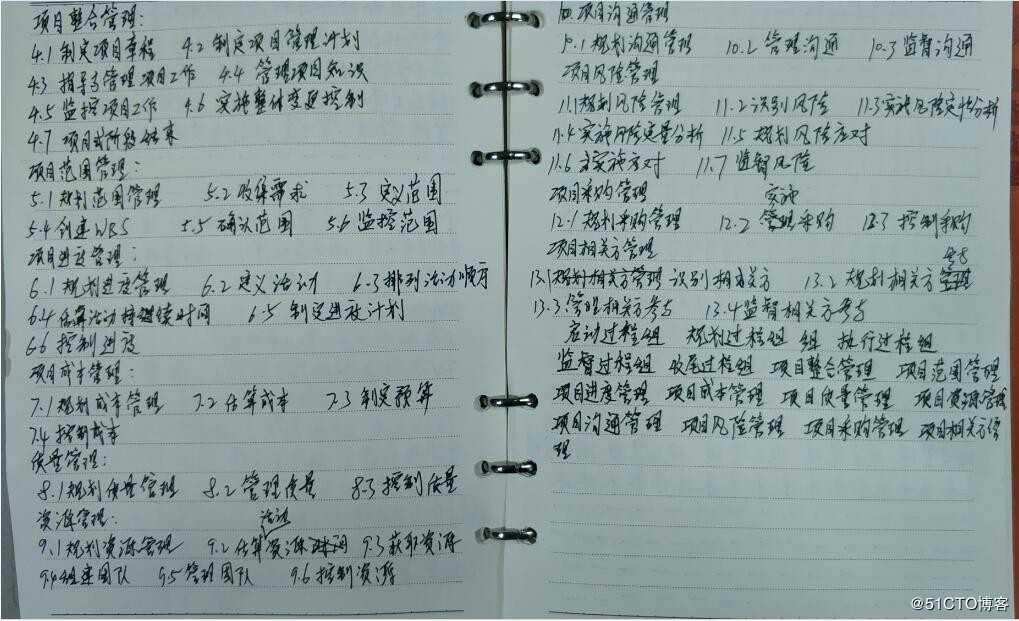 项目整合管理:
4.1 制定项目章程 4.2 制定项目管理计划
4.3 指导与管理项目工作 4.4 管理项目知识
4.5 监控项目工作 4.6 实施整体变更控制
4.7 项目或阶段结束
项目范围管理:
5.1 规划范围管理 5.2 收集需求 5.3 定义范围
5.4 创建WBS 5.5 确认范围 5.6 监控范围
项目进度管理:
6.1 规划进度管理 6.2 定义活动 6.3 排列活动顺序
6.4 估算活动持续时间 6.5 制定进度计划
6.6 控制进度
项目成本管理:
7.1 规划成本管理 7.2 估算成本 7.3 制定预算
7.4 控制成本
质量管理:
8.1 规划质量管理 8.2 管理质量 8.3 控制质量
资源管理:
活动
9.1 规划资源管理 9.2 估算资源 9.3 获取资源
9.4 组建团队 9.5 管理团队 9.6 控制资源
10. 项目沟通管理
10.1 规划沟通管理 10.2 管理沟通 10.3 监督沟通
项目风险管理
11.1 规划风险管理 11.2 识别风险 11.3 实施风险定性分析
11.4 实施风险定量分析 11.5 规划风险应对
11.6 实施应对 11.7 监督风险
项目采购管理 实施
12.1 规划采购管理 12.2 管理采购 12.3 控制采购
项目相关方管理
参与
13.1 规划相关方管理 识别相关方 13.2 规划相关方管理
13.3 管理相关方参与 13.4 监督相关方参与
启动过程组 规划过程组 组 执行过程组
监督过程组 收尾过程组 项目整合管理 项目范围管理
项目进度管理 项目成本管理 项目质量管理 项目资源管理
项目沟通管理 项目风险管理 项目采购管理 项目相关方管
理
@51CTO博客